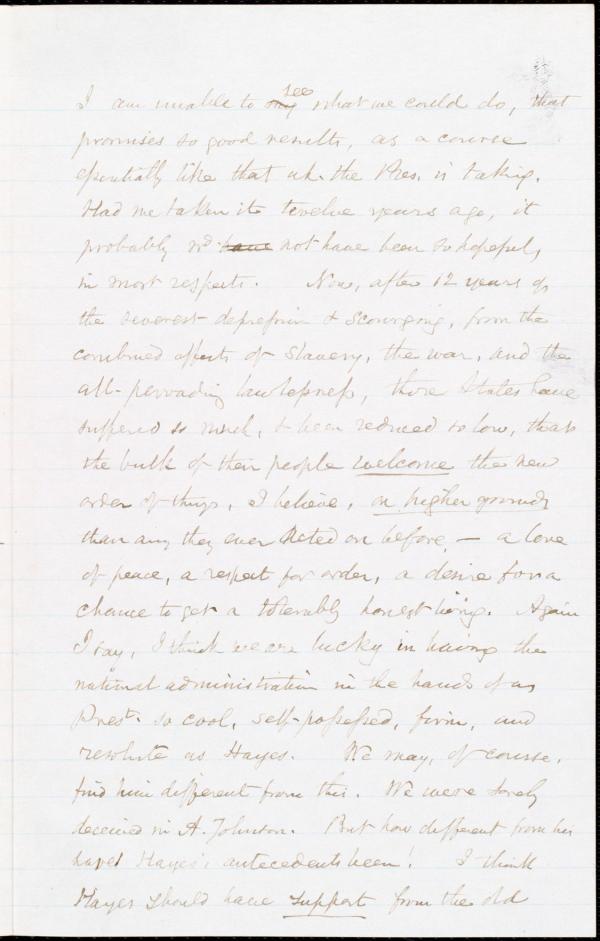 I am unable to see what we could do, that
promises so good results, as a course
essentially like that wh. the Pres. is taking.
Had we taken it twelve years ago, it
probably wd. have not have been so hopeful,
in most respects. Now, after 12 years of
the severest depression & scourging, from the
combined effects of slavery, the war, and the
all-pervading lawlessness, those States have
suffered so much, & been reduced so low, that
the bulk of their people welcome the new
order of things, I believe, on higher grounds
than any they ever acted on before, — a love
of peace, a respect for order, a desire for a
chance to get a tolerably honest living. Again
I say, I think we are lucky in having the
national administration in the hands of a
Prest. so cool, self-possessed, firm, and
resolute as Hayes. We may, of course,
find him different from this. We were sorely
deceived in A. Johnson. But how different from his
have Hayes's antecedents been! I think
Hayes should have support from the old